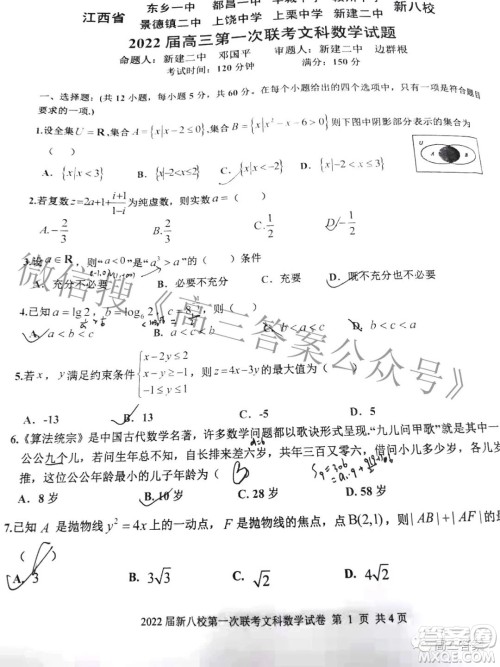 江西省 东乡一中 都昌一中 新八校
景德镇二中 上饶中学 上栗中学 新建二中
2022 届高三第一次联考文科数学试题
命题人：新建二中 邓国平 审题人：新建二中 边群根
考试时间：120分钟 满分：150分
一、选择题：(共 12 小题，每小题 5 分，共 60 分，在每小题给出的四个选项中，只有一项是符合题目
要求的一项.)
1.设全集U=R,集合A={x|x-2≤0},集合B={x|x²-x-6>0}则下图中阴影部分表示的集合为
U A B
（ ）
A. {x|x<3} B. {x|-2<x≤2} C. {x|-2≤x<2} D. {x|-2≤x≤2}
2.若复数z=2a+1+(i+1)/(1-i)为纯虚数，则实数a=（ ）
A. -2/3 B. 2/3 C. 1/2 D. -1/2
3.设a∈R，则"a<0"是"a³>a"的（ ）条件
A. 充分不必要 B. 必要不充分 C. 充要 D. 既不充分也不必要
4.已知a=lg2，b=log₆2，则（ ）
A. a<b<c B. a<c<b D. b<c<a
5.若x，y满足约束条件{x-2y≤2 x-y≥-1 x+y≤5，则z=4x-3y的最大值为（ ）
A. -13 B. 13 C. -5 D. 5
6.《算法统宗》是中国古代数学名著，许多数学问题都以歌诀形式呈现."九儿问甲歌"就是其中一
公公九个儿，若问生年总不知，自长排来差六岁，共年三百又零六，借问小儿多少岁，各儿岁数
推，这位公公年龄最小的儿子年龄为（ ）
A. 8岁 B. 10岁 C. 28 岁 D. 58 岁
7.已知 A 是抛物线y²=4x的一动点，F是抛物线的焦点，点B(2,1)，则|AB|+|AF|的最
（ ）
A. 3 B. 3√3 C. √2 D. √3
2022 届新八校第一次联考文科数学试卷 第 1 页 共 4 页
微信搜《高三答案公众号》